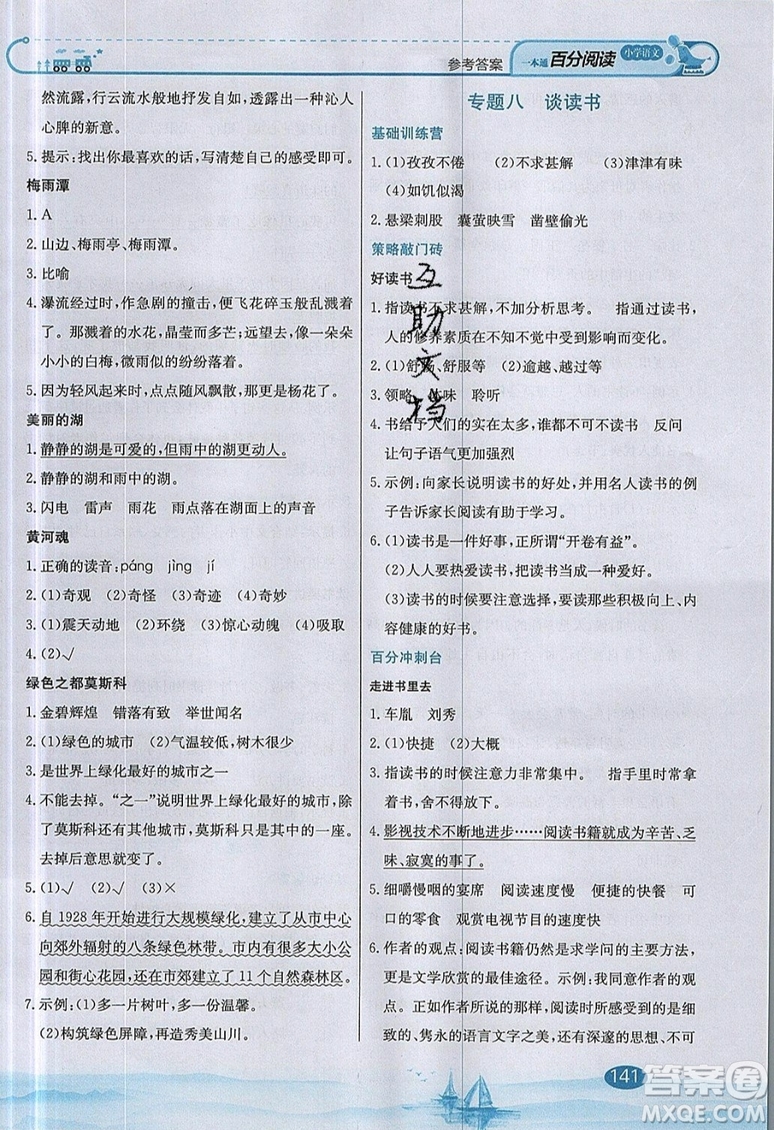 参考答案 一本通 百分阅读 小学语文
然流露，行云流水般地抒发自如，透露出一种沁人
心脾的新意。
5. 提示：找出你最喜欢的话，写清楚自己的感受即可。
梅雨潭
1. A
2. 山边、梅雨亭、梅雨潭。
3. 比喻
4. 瀑流经过时，作急剧的撞击，便飞花碎玉般乱溅着
了。那溅着的水花，晶莹而多芒；远望去，像一朵朵
小小的白梅，微雨似的纷纷落着。
5. 因为轻风起来时，点点随风飘散，那更是杨花了。
美丽的湖
1. 静静的湖是可爱的，但雨中的湖更动人。
2. 静静的湖和雨中的湖。
3. 闪电 雷声 雨花 雨点落在湖面上的声音
黄河魂
1. 正确的读音：páng jìng jí
2. (1)奇观 (2)奇怪 (3)奇迹 (4)奇妙
3. (1)震天动地 (2)环绕 (3)惊心动魄 (4)吸取
4. (2)√
绿色之都莫斯科
1. 金碧辉煌 错落有致 举世闻名
2. (1)绿色的城市 (2)气温较低，树木很少
3. 是世界上绿化最好的城市之一
4. 不能去掉。“之一”说明世界上绿化最好的城市，除
了莫斯科还有其他城市，莫斯科只是其中的一座。
去掉后意思就变了。
5. (1)√ (2)√ (3)×
6. 自 1928 年开始进行大规模绿化，建立了从市中心
向郊外辐射的八条绿色林带。市内有许多小公
园和街心花园，还在市郊建立了 11 个自然森林区。
7. 示例：(1)多一片树叶，多一份温馨。
(2)构筑绿色屏障，再造秀美山川。
专题八 谈读书
基础训练营
1. (1)孜孜不倦 (2)不求甚解 (3)津津有味
(4)如饥似渴
2. 悬梁刺股 囊萤映雪 凿壁偷光
策略敲门砖
好读书
互助文档
1. 指读书不求甚解，不加分析思考。 指通过读书，
人的修养素质在不知不觉中受到影响而变化。
2. (1)舒畅、舒服等 (2)逾越、越过等
3. 领略 体味 聆听
4. 书给予人们的实在太多，谁都不可不读书 反问
让句子语气更加强烈
5. 示例：向家长说明读书的好处，并用名人读书的例
子告诉家长阅读有助于学习。
6. (1)读书是一件好事，正所谓“开卷有益”。
(2)人人要热爱读书，把读书当成一种爱好。
(3)读书的时候要注意选择，要读那些积极向上、内
容健康的好书。
百分冲刺台
走进书里去
1. 车胤 刘秀
2. (1)快捷 (2)大概
3. 指读书的时候注意力非常集中。 指手里时时刻刻
拿着书。
4. 影视技术不断地进步……阅读书籍就成为辛苦、乏
味、寂寞的事了。
5. 细嚼慢咽的宴席 阅读速度慢 便捷的快餐 可
口的零食 观赏电视节目的速度快
6. 作者的观点：阅读书籍仍然是求学问的主要方法，
更是文学欣赏的主要途径。示例：我同意作者的观
点。正如作者所说的那样，阅读中可以感受到那细
致的、隽永的语言文字之美，还有深邃的思想、不可
141
答案圈
MXQE.COM